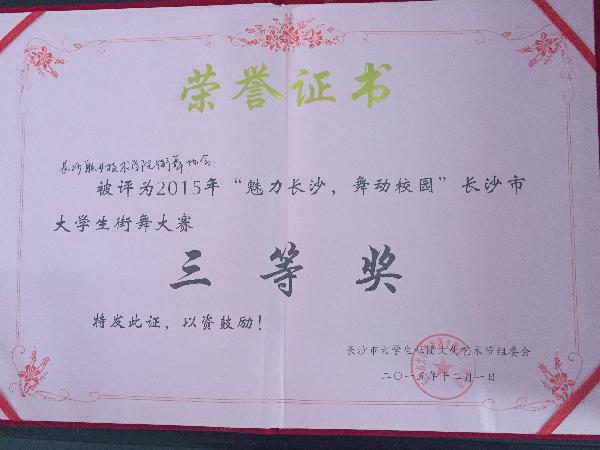 荣誉证书
长沙职业技术学院街舞协会
被评为2015年“魅力长沙，舞动校园”长沙市
大学生街舞大赛
三等奖
特发此证，以资鼓励！
长沙市大学生社团文化艺术节组委会
二〇一五年十二月一日